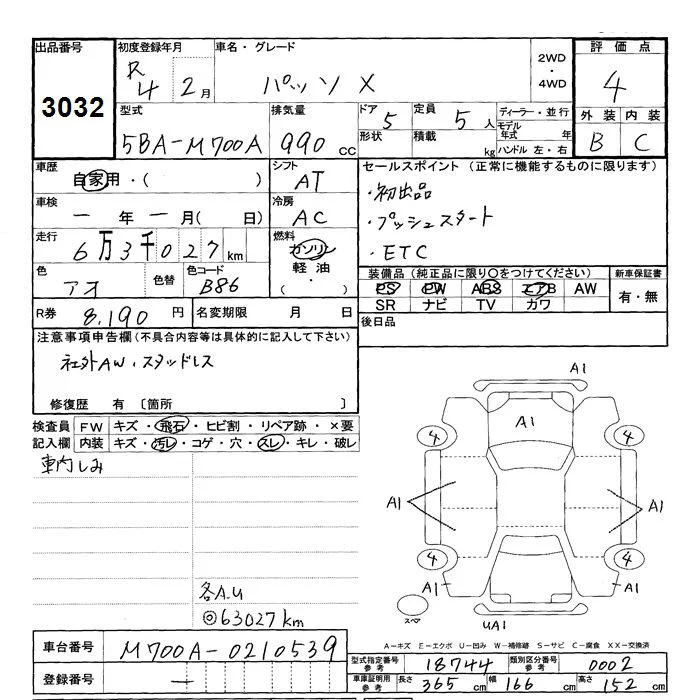 出品番号 初度登録年月 車名・グレード 2WD・4WD 評価点
3032 R4 2月 パッソ X 4
型式 排気量 ドア 5 定員 5人 ディーラー・並行 外装 内装
5BA-M700A 990cc 形状 積載 kg モデル年式 年 B C
ハンドル 左・右
車歴 シフト セールスポイント (正常に機能するものに限ります)
自家用・( ) AT ・初出品
車検 冷房 ・プッシュスタート
一年一月( 日) AC ・ETC
走行 燃料
6万3千027km ガソリン
色 色替 色コード 軽油 装備品 (純正品に限り○をつけてください) 新車保証書
アオ B86 ( ・ ) PS PW ABS エアB AW 有・無
SR ナビ TV カワ
R券 8,190円 名変期限 月 日 後日品
注意事項申告欄(不具合内容等は具体的に記入して下さい)
社外AW・スタッドレス
修復歴 有 〔箇所 〕
検査員 FW キズ・飛石・ヒビ割・リペア跡・×要
記入欄 内装 キズ・汚レ・コゲ・穴・スレ・キレ・破レ
車内しみ
各A.U
◎63027km
A1
A1
4 4
A1 A1
4 4
A1 A1
スペア UA1
A-キズ E-エクボ U-凹み W-補修跡 S-サビ C-腐食 XX-交換済
車台番号 M700A-0210539
型式指定番号参考 18744 類別区分番号参考 0002
登録番号 一
車庫証明用参考 長さ 365cm 幅 166cm 高さ 152cm